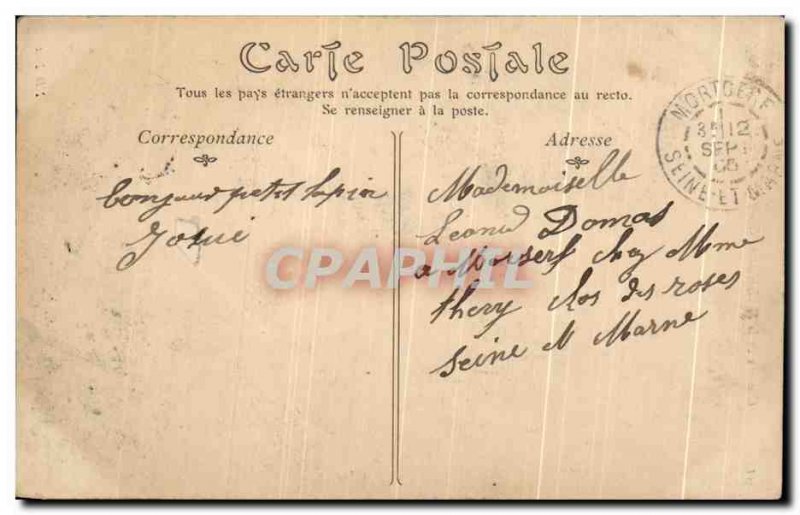 Carte Postale
Tous les pays étrangers n'acceptent pas la correspondance au recto.
Se renseigner à la poste.
Correspondance
bonjour petit lapin
Adresse
Mademoiselle
Domas
a Morserf chez Mme
thery clos des roses
Seine et Marne
MORTCERF
12
SEPT
SEINE-ET-MARNE
CPAPHIL